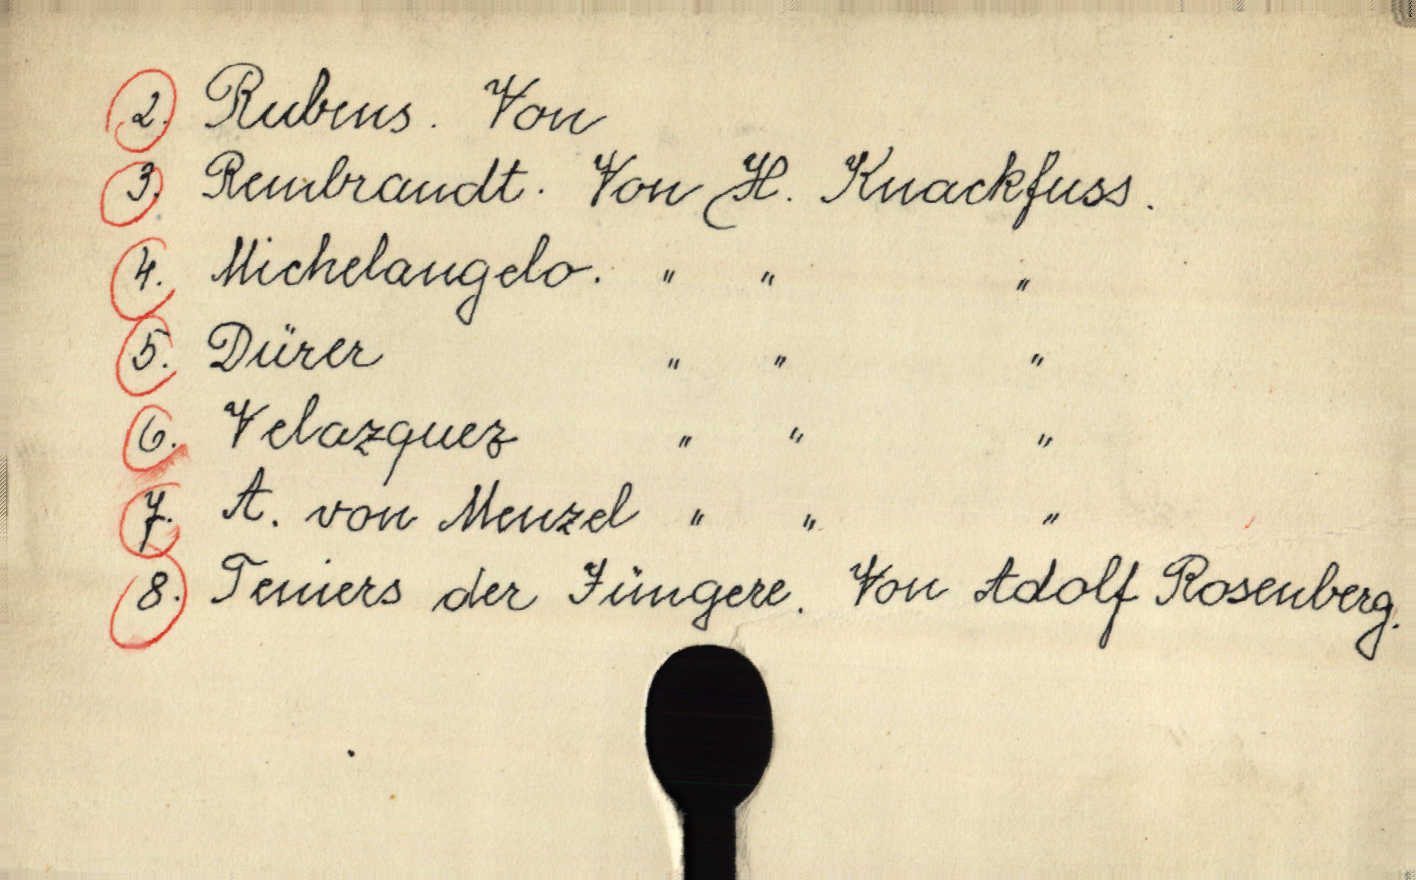 2. Rubens. Von
3. Rembrandt. Von H. Knackfuss.
4. Michelangelo. " " "
5. Dürer " " "
6. Velazquez " " "
7. A. von Menzel " " "
8. Teniers der Jüngere. Von Adolf Rosenberg.